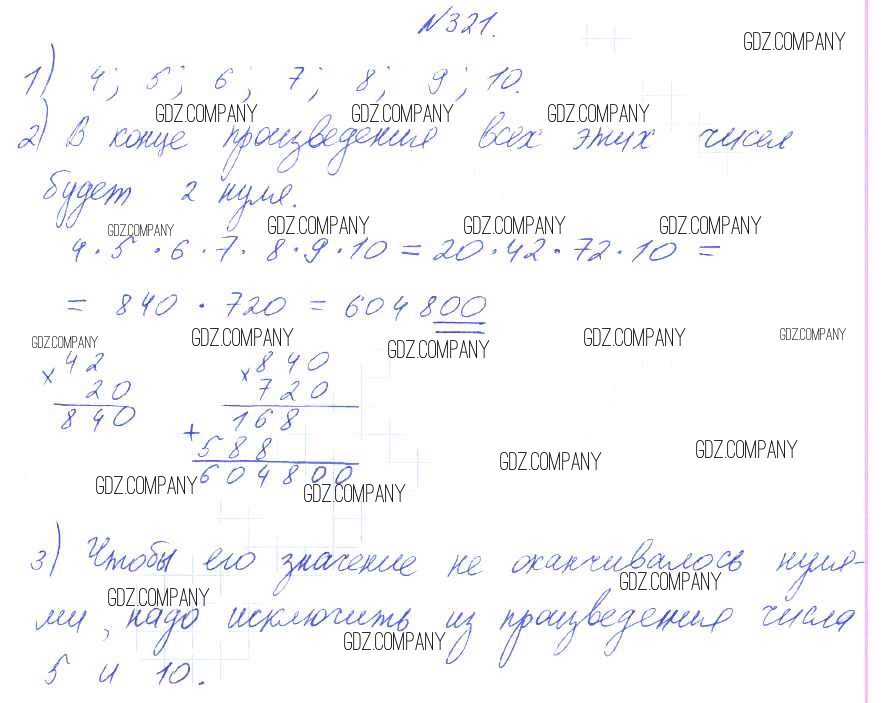 №321.
GDZ.COMPANY
1) 4; 5; 6; 7; 8; 9; 10.
GDZ.COMPANY GDZ.COMPANY GDZ.COMPANY
2) В конце произведения всех этих чисел
будет 2 нуля.
GDZ.COMPANY GDZ.COMPANY GDZ.COMPANY GDZ.COMPANY
4 · 5 · 6 · 7 · 8 · 9 · 10 = 20 · 42 · 72 · 10 =
= 840 · 720 = 604800
GDZ.COMPANY GDZ.COMPANY GDZ.COMPANY GDZ.COMPANY GDZ.COMPANY
× 42 × 840
20 720
840 168
+ 588
604800
GDZ.COMPANY GDZ.COMPANY GDZ.COMPANY GDZ.COMPANY
3) Чтобы его значение не оканчивалось нуля-
GDZ.COMPANY GDZ.COMPANY
ми, надо исключить из произведения числа
GDZ.COMPANY
5 и 10.